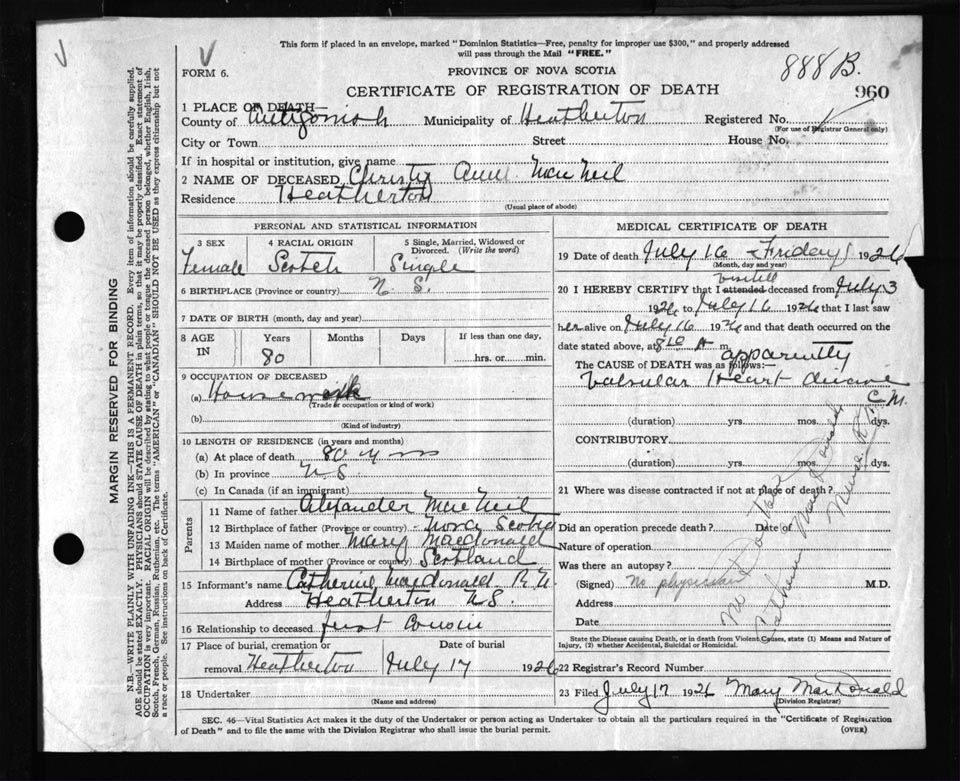 This form if placed in an envelope, marked "Dominion Statistics—Free, penalty for improper use $300," and properly addressed
will pass through the Mail "FREE."
FORM 6.
PROVINCE OF NOVA SCOTIA
888B.
CERTIFICATE OF REGISTRATION OF DEATH
960
1 PLACE OF DEATH—
County of Antigonish Municipality of Heatherton Registered No.
(For use of Registrar General only)
City or Town Street House No.
If in hospital or institution, give name
2 NAME OF DECEASED Christy Ann MacNeil
Residence Heatherton
(Usual place of abode)
PERSONAL AND STATISTICAL INFORMATION
3 SEX 4 RACIAL ORIGIN 5 Single, Married, Widowed or
Divorced. (Write the word)
Female Scotch Single
6 BIRTHPLACE (Province or country) N. S.
7 DATE OF BIRTH (month, day and year)
8 AGE IN Years Months Days If less than one day,
80 hrs. or min.
9 OCCUPATION OF DECEASED
(a) Housework
(Trade or occupation or kind of work)
(b)
(Kind of industry)
10 LENGTH OF RESIDENCE (in years and months)
(a) At place of death 80 yrs
(b) In province N S
(c) In Canada (if an immigrant)
Parents
11 Name of father Alexander MacNeil
12 Birthplace of father (Province or country) Nova Scotia
13 Maiden name of mother Mary Macdonald
14 Birthplace of mother (Province or country) Scotland
15 Informant's name Catherine Macdonald R.N.
Address Heatherton N.S.
16 Relationship to deceased first Cousin
17 Place of burial, cremation or Date of burial
removal Heatherton July 17 1926
18 Undertaker
(Name and address)
MEDICAL CERTIFICATE OF DEATH
19 Date of death July 16 Friday 1926
(Month, day and year)
visited
20 I HEREBY CERTIFY that I attended deceased from July 3
1926 to July 16 1926 that I last saw
her alive on July 16 1926 and that death occurred on the
date stated above, at 8 10 A m.
apparently
The CAUSE OF DEATH was as follows:—
Valvular Heart disease
C. M.
(duration) yrs. mos. dys.
CONTRIBUTORY
(duration) yrs. mos. dys.
21 Where was disease contracted if not at place of death?
Did an operation precede death? Date of
Nature of operation
Was there an autopsy?
(Signed) No physician M.D.
Address
Date
State the Disease causing Death, or in death from Violent Causes, state (1) Means and Nature of
Injury, (2) whether Accidental, Suicidal or Homicidal.
22 Registrar's Record Number
23 Filed July 17 1926 Mary MacDonald
(Division Registrar)
SEC. 46—Vital Statistics Act makes it the duty of the Undertaker or person acting as Undertaker to obtain all the particulars required in the "Certificate of Registration
of Death" and to file the same with the Division Registrar who shall issue the burial permit.
(OVER)
MARGIN RESERVED FOR BINDING
N.B.—WRITE PLAINLY WITH UNFADING INK—THIS IS A PERMANENT RECORD. Every item of information should be carefully supplied.
AGE should be stated EXACTLY. PHYSICIANS should STATE CAUSE OF DEATH in plain terms, so that it may be properly classified. Exact statement of
OCCUPATION is very important. RACIAL ORIGIN will be described by stating to what people or tongue the deceased person belonged, whether English, Irish,
Scotch, French, German, Russian, Ruthenian, etc. The terms "AMERICAN" or "CANADIAN" SHOULD NOT BE USED as they express citizenship but not
a race or people. See instructions on back of Certificate.